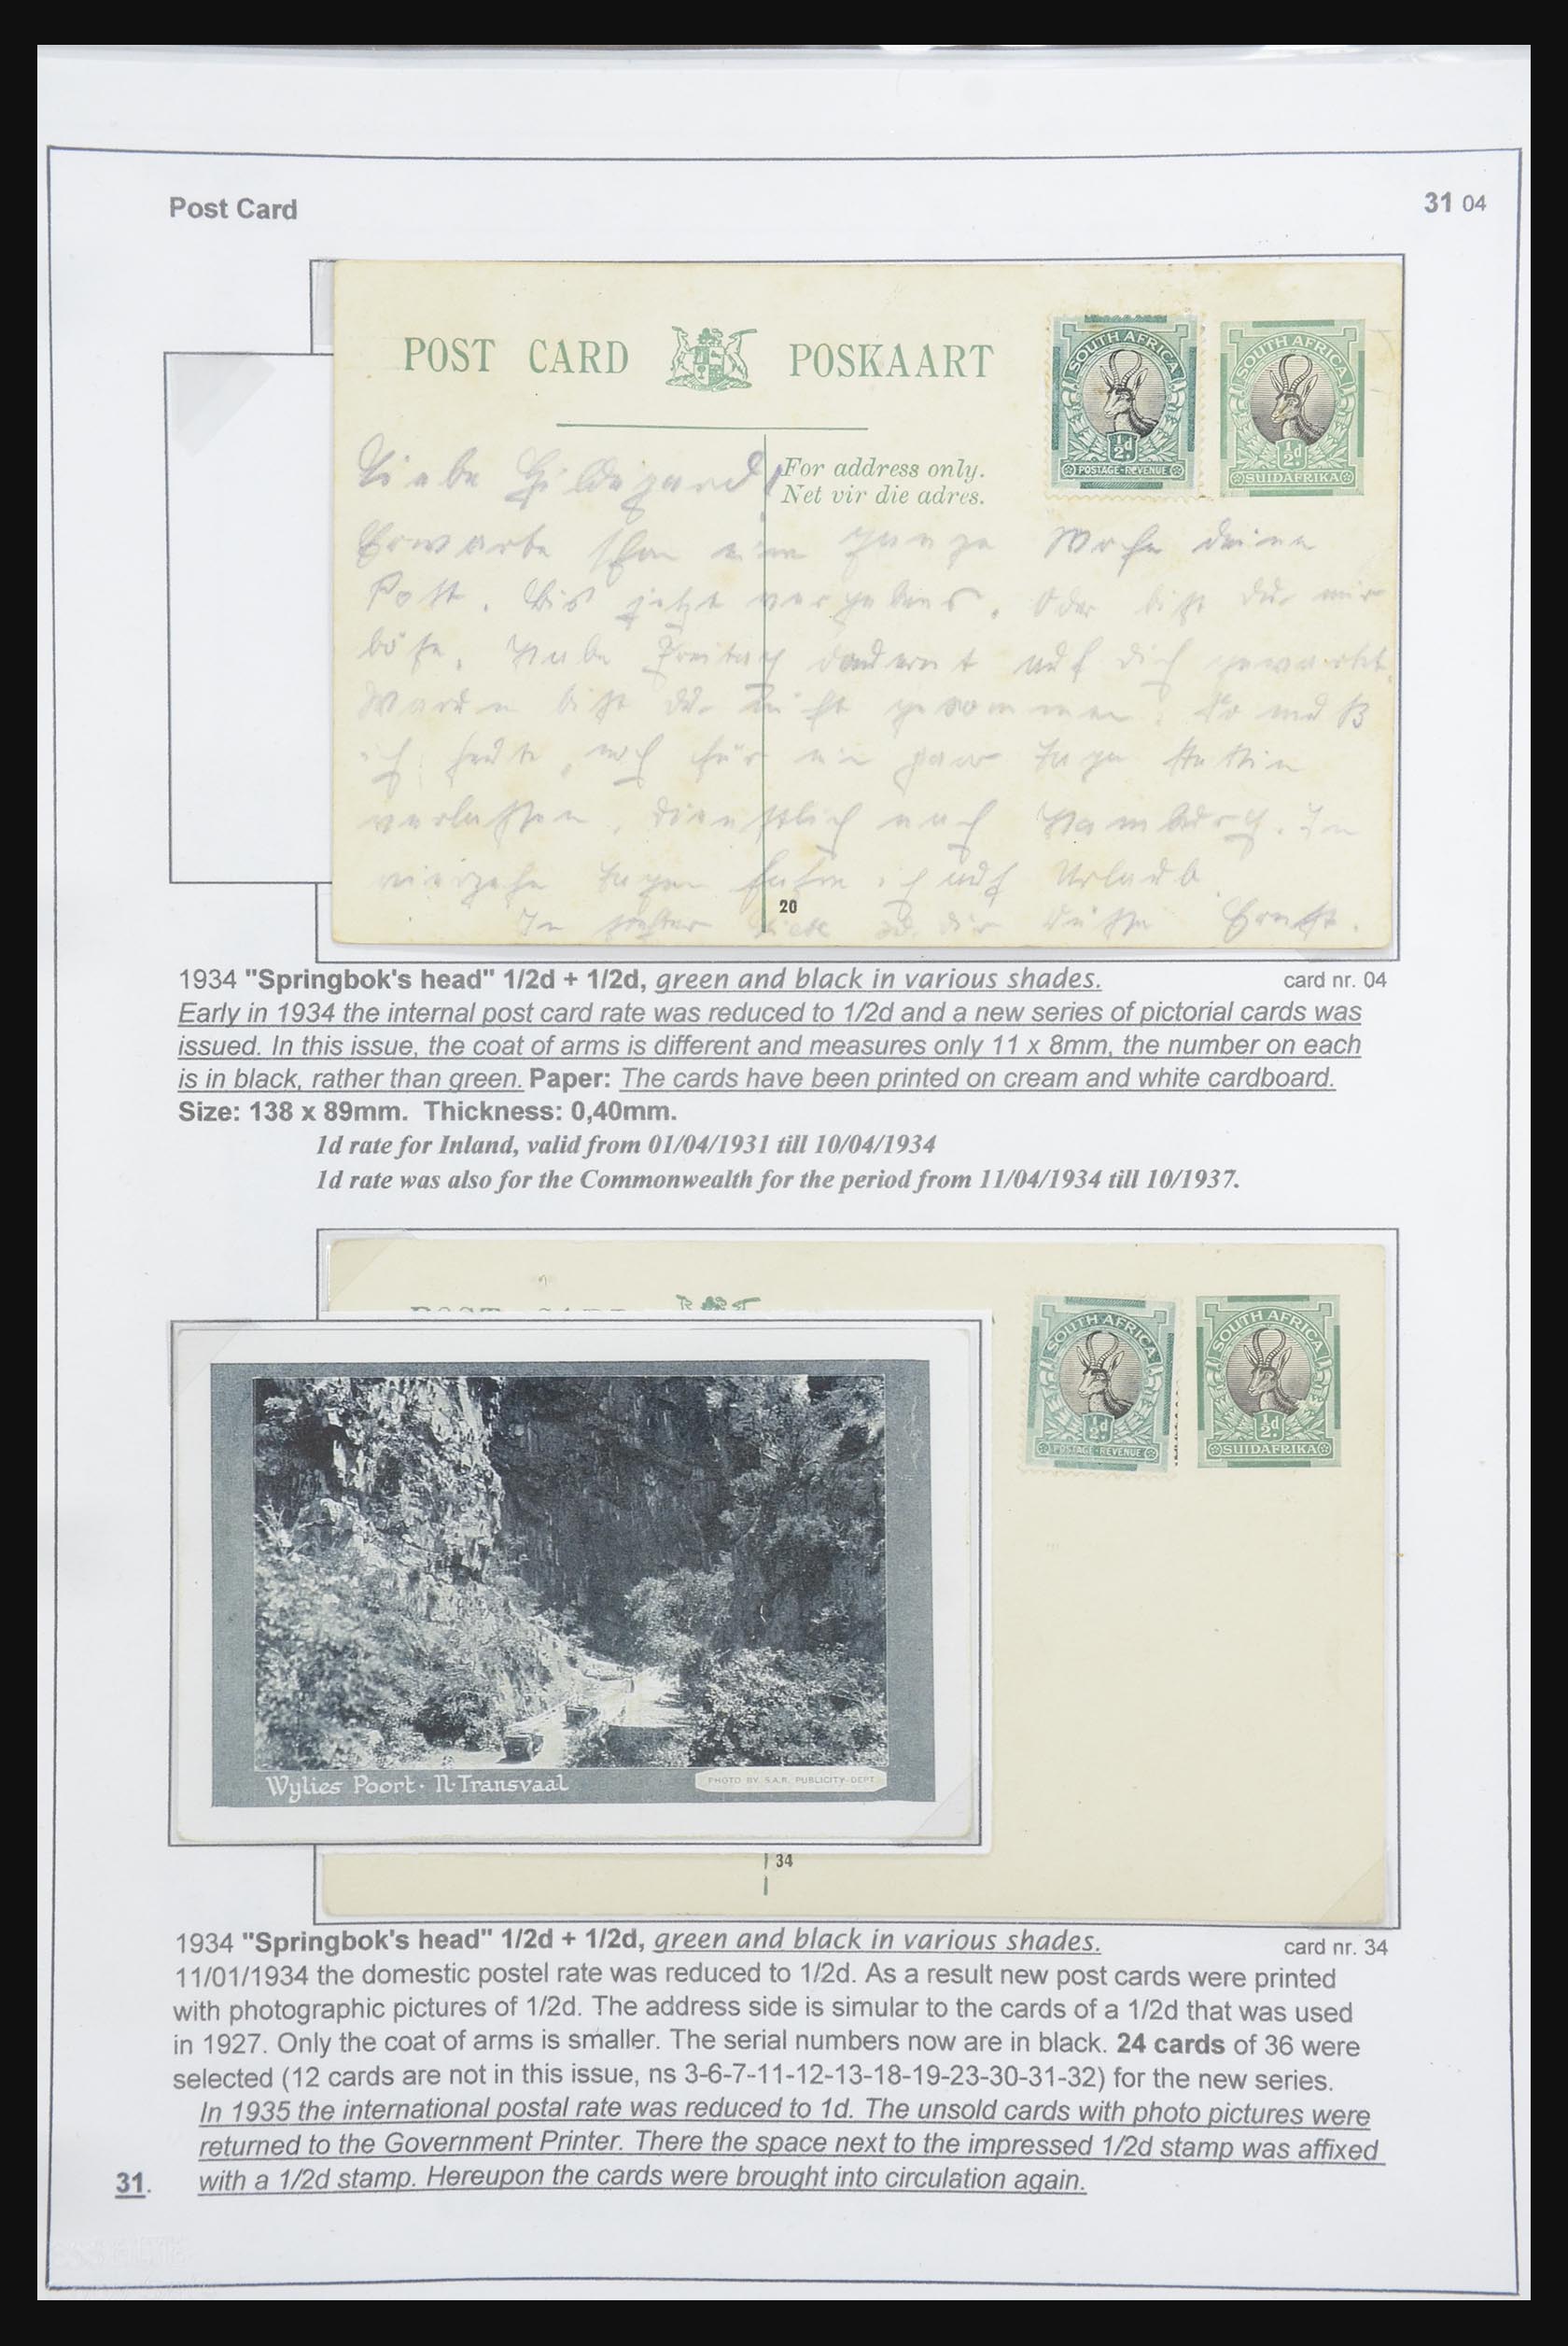 Post Card
31 04
POST CARD POSKAART
SOUTH AFRICA
½d.
POSTAGE-REVENUE
SOUTH AFRICA
½d.
SUIDAFRIKA
For address only.
Net vir die adres.
Liebe Hildegard!
Erwarte schon eine ganze Woche deine
Post. Bis jetzt vergebens. Oder bist du mir
böse. Habe Freitag dauernd auf dich gewartet.
Warum bist du nicht gekommen. So muß
ich heute noch für ein paar Tage Stettin
verlassen, dienstlich nach Hamburg. In
vierzehn Tagen fahre ich auf Urlaub
In Liebe dir Ernst.
20
1934 "Springbok's head" 1/2d + 1/2d, green and black in various shades. card nr. 04
Early in 1934 the internal post card rate was reduced to 1/2d and a new series of pictorial cards was
issued. In this issue, the coat of arms is different and measures only 11 x 8mm, the number on each
is in black, rather than green. Paper: The cards have been printed on cream and white cardboard.
Size: 138 x 89mm. Thickness: 0,40mm.
1d rate for Inland, valid from 01/04/1931 till 10/04/1934
1d rate was also for the Commonwealth for the period from 11/04/1934 till 10/1937.
POST CARD
SOUTH AFRICA
½d.
POSTAGE-REVENUE
SOUTH AFRICA
½d.
SUIDAFRIKA
Wylies Poort · N·Transvaal
PHOTO BY S.A.R. PUBLICITY-DEPT
34
1934 "Springbok's head" 1/2d + 1/2d, green and black in various shades. card nr. 34
11/01/1934 the domestic postel rate was reduced to 1/2d. As a result new post cards were printed
with photographic pictures of 1/2d. The address side is simular to the cards of a 1/2d that was used
in 1927. Only the coat of arms is smaller. The serial numbers now are in black. 24 cards of 36 were
selected (12 cards are not in this issue, ns 3-6-7-11-12-13-18-19-23-30-31-32) for the new series.
In 1935 the international postal rate was reduced to 1d. The unsold cards with photo pictures were
returned to the Government Printer. There the space next to the impressed 1/2d stamp was affixed
with a 1/2d stamp. Hereupon the cards were brought into circulation again.
31.